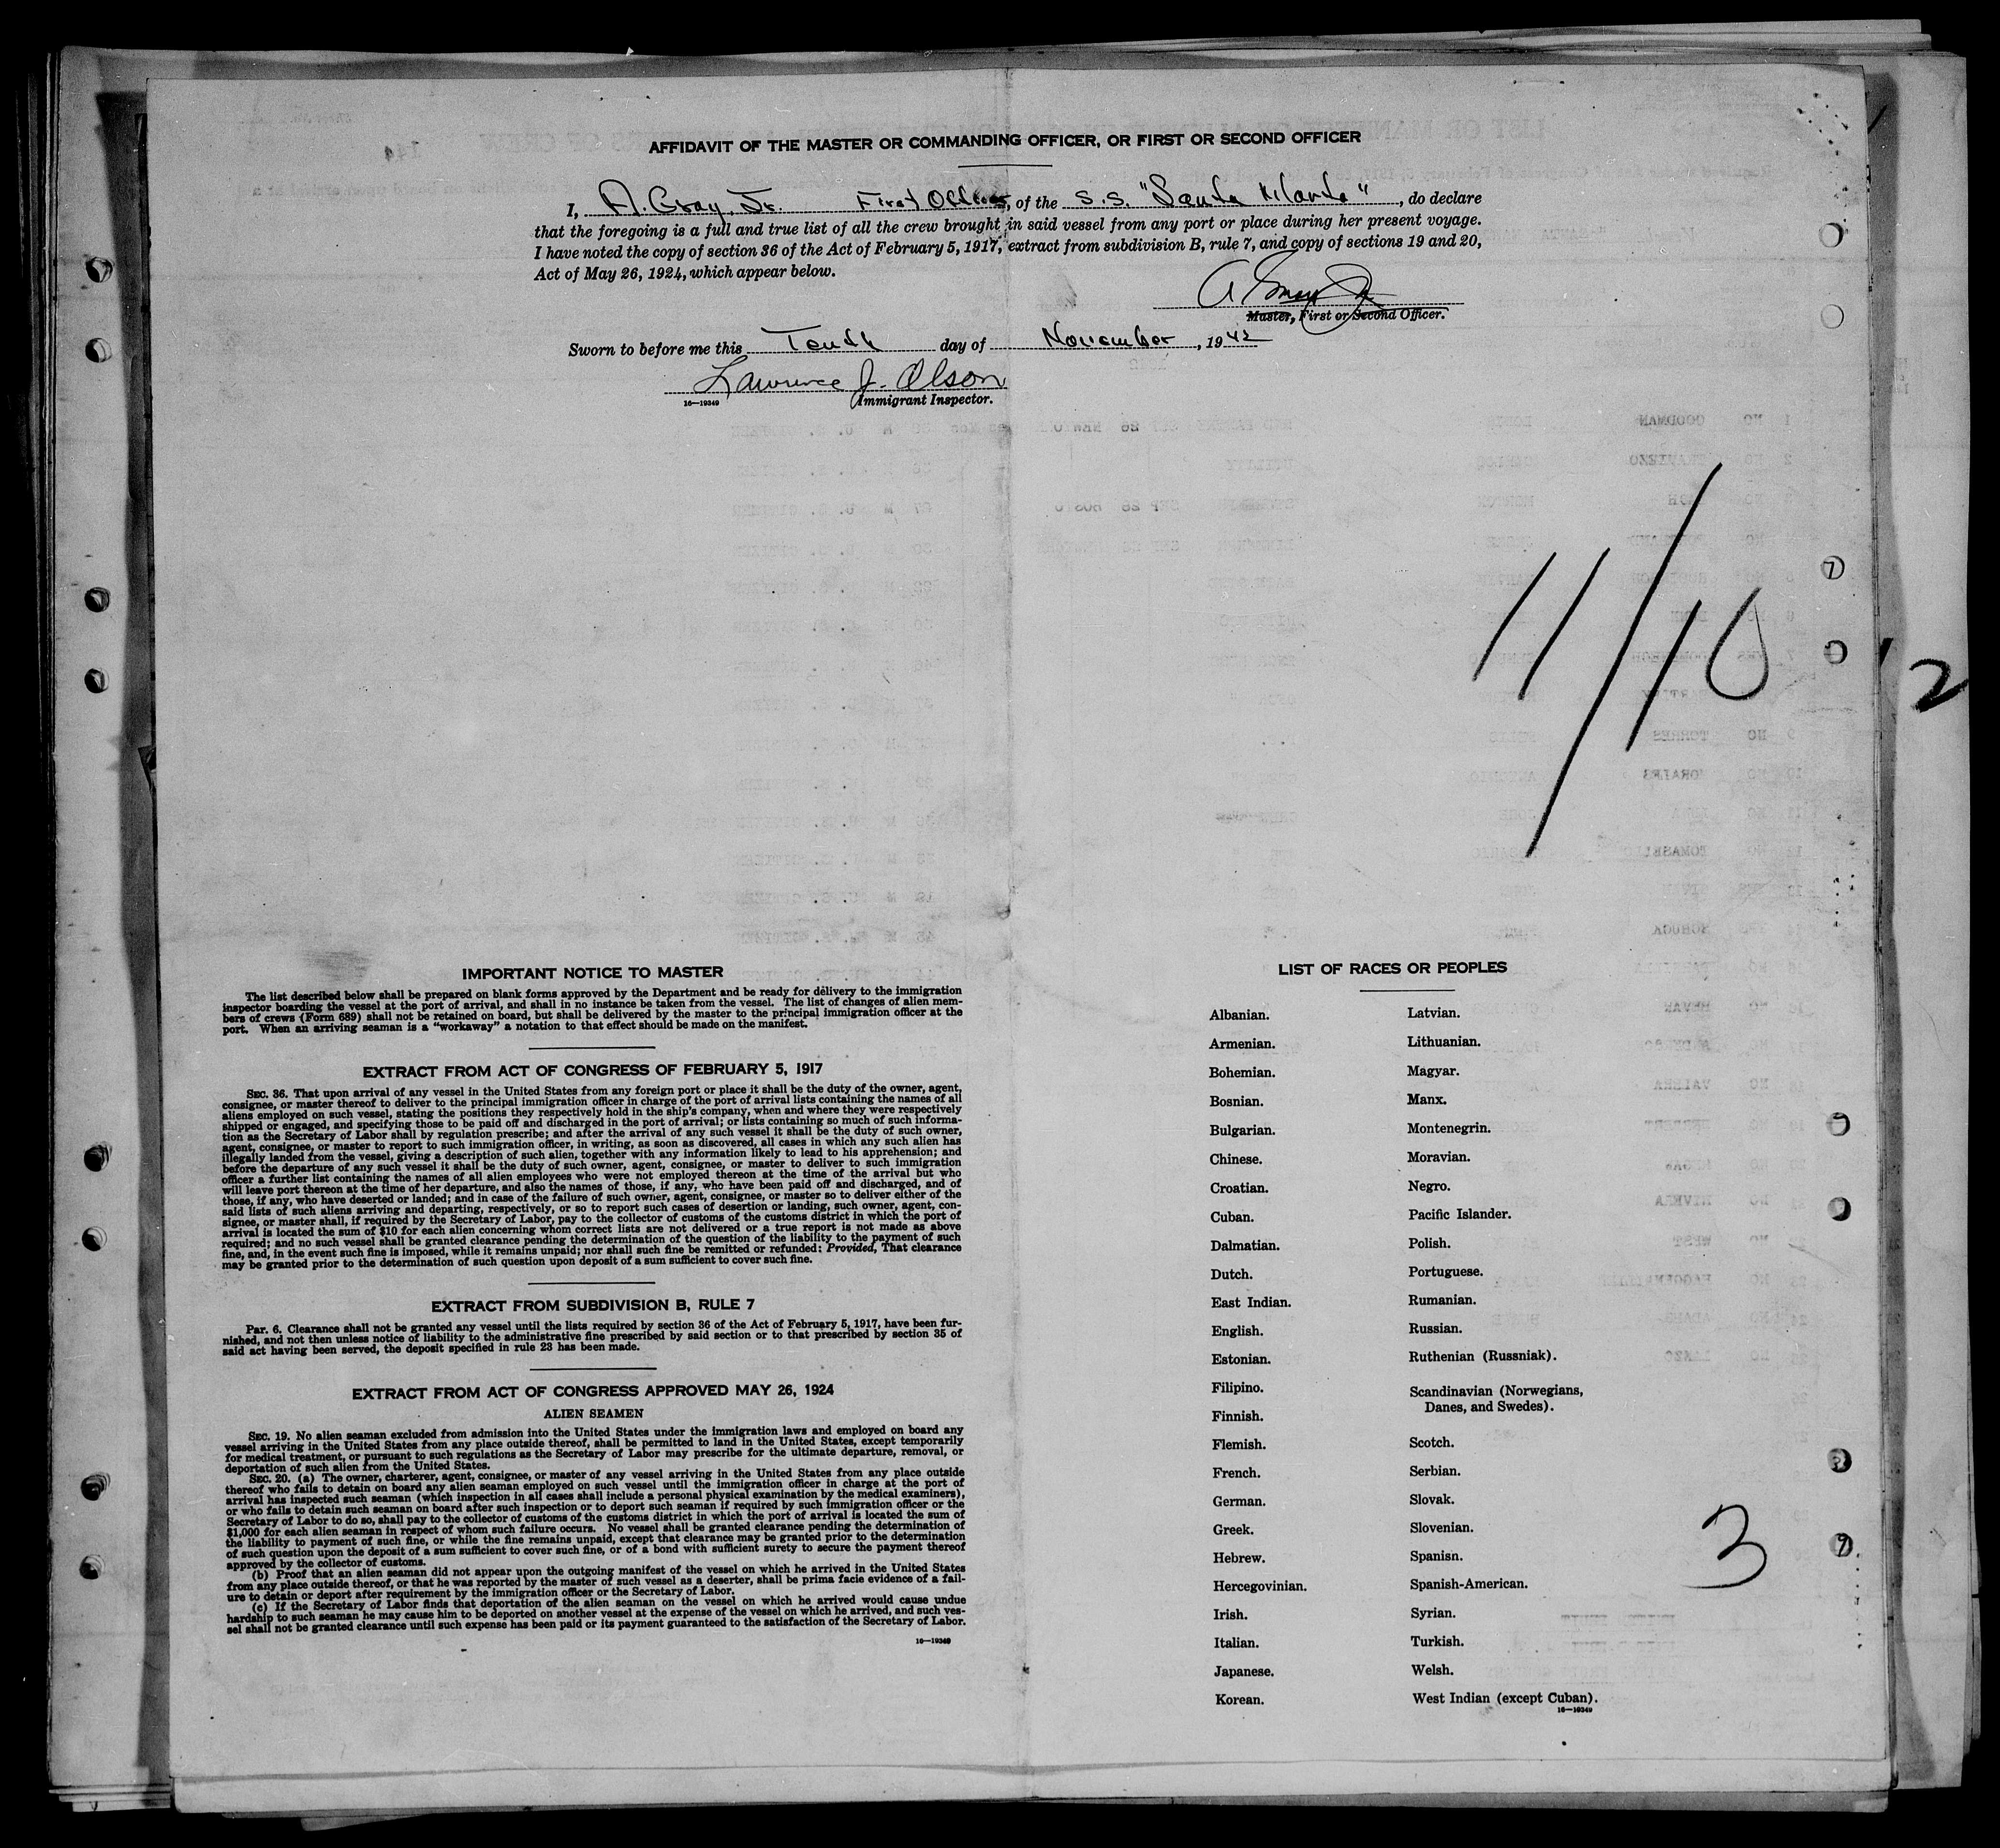 AFFIDAVIT OF THE MASTER OR COMMANDING OFFICER, OR FIRST OR SECOND OFFICER
I, A. Gray, Jr. First Officer, of the S.S. "Santa Marta", do declare
that the foregoing is a full and true list of all the crew brought in said vessel from any port or place during her present voyage.
I have noted the copy of section 36 of the Act of February 5, 1917, extract from subdivision B, rule 7, and copy of sections 19 and 20,
Act of May 26, 1924, which appear below.
A Gray Jr
Master, First or Second Officer.
Sworn to before me this Tenth day of November, 1942
Lawrence J. Olson
16—19349 Immigrant Inspector.
11/10
2
IMPORTANT NOTICE TO MASTER
The list described below shall be prepared on blank forms approved by the Department and be ready for delivery to the immigration
inspector boarding the vessel at the port of arrival, and shall in no instance be taken from the vessel. The list of changes of alien mem-
bers of crews (Form 689) shall not be retained on board, but shall be delivered by the master to the principal immigration officer at the
port. When an arriving seaman is a "workaway" a notation to that effect should be made on the manifest.
EXTRACT FROM ACT OF CONGRESS OF FEBRUARY 5, 1917
SEC. 36. That upon arrival of any vessel in the United States from any foreign port or place it shall be the duty of the owner, agent,
consignee, or master thereof to deliver to the principal immigration officer in charge of the port of arrival lists containing the names of all
aliens employed on such vessel, stating the positions they respectively hold in the ship's company, when and where they were respectively
shipped or engaged, and specifying those to be paid off and discharged in the port of arrival; or lists containing so much of such informa-
tion as the Secretary of Labor shall by regulation prescribe; and after the arrival of any such vessel it shall be the duty of such owner,
agent, consignee, or master to report to such immigration officer, in writing, as soon as discovered, all cases in which any such alien has
illegally landed from the vessel, giving a description of such alien, together with any information likely to lead to his apprehension; and
before the departure of any such vessel it shall be the duty of such owner, agent, consignee, or master to deliver to such immigration
officer a further list containing the names of all alien employees who were not employed thereon at the time of the arrival but who
will leave port thereon at the time of her departure, and also the names of those, if any, who have been paid off and discharged, and of
those, if any, who have deserted or landed; and in case of the failure of such owner, agent, consignee, or master so to deliver either of the
said lists of such aliens arriving and departing, respectively, or so to report such cases of desertion or landing, such owner, agent, con-
signee, or master shall, if required by the Secretary of Labor, pay to the collector of customs of the customs district in which the port of
arrival is located the sum of $10 for each alien concerning whom correct lists are not delivered or a true report is not made as above
required; and no such vessel shall be granted clearance pending the determination of the question of the liability to the payment of such
fine, and, in the event such fine is imposed, while it remains unpaid; nor shall such fine be remitted or refunded: Provided, That clearance
may be granted prior to the determination of such question upon deposit of a sum sufficient to cover such fine.
EXTRACT FROM SUBDIVISION B, RULE 7
Par. 6. Clearance shall not be granted any vessel until the lists required by section 36 of the Act of February 5, 1917, have been fur-
nished, and not then unless notice of liability to the administrative fine prescribed by said section or to that prescribed by section 35 of
said act having been served, the deposit specified in rule 23 has been made.
EXTRACT FROM ACT OF CONGRESS APPROVED MAY 26, 1924
ALIEN SEAMEN
SEC. 19. No alien seaman excluded from admission into the United States under the immigration laws and employed on board any
vessel arriving in the United States from any place outside thereof, shall be permitted to land in the United States, except temporarily
for medical treatment, or pursuant to such regulations as the Secretary of Labor may prescribe for the ultimate departure, removal, or
deportation of such alien from the United States.
SEC. 20. (a) The owner, charterer, agent, consignee, or master of any vessel arriving in the United States from any place outside
thereof who fails to detain on board any alien seaman employed on such vessel until the immigration officer in charge at the port of
arrival has inspected such seaman (which inspection in all cases shall include a personal physical examination by the medical examiners),
or who fails to detain such seaman on board after such inspection or to deport such seaman if required by such immigration officer or the
Secretary of Labor to do so, shall pay to the collector of customs of the customs district in which the port of arrival is located the sum of
$1,000 for each alien seaman in respect of whom such failure occurs. No vessel shall be granted clearance pending the determination of
the liability to payment of such fine, or while the fine remains unpaid, except that clearance may be granted prior to the determination
of such question upon the deposit of a sum sufficient to cover such fine, or of a bond with sufficient surety to secure the payment thereof
approved by the collector of customs.
(b) Proof that an alien seaman did not appear upon the outgoing manifest of the vessel on which he arrived in the United States
from any place outside thereof, or that he was reported by the master of such vessel as a deserter, shall be prima facie evidence of a fail-
ure to detain or deport after requirement by the immigration officer or the Secretary of Labor.
(c) If the Secretary of Labor finds that deportation of the alien seaman on the vessel on which he arrived would cause undue
hardship to such seaman he may cause him to be deported on another vessel at the expense of the vessel on which he arrived, and such ves-
sel shall not be granted clearance until such expense has been paid or its payment guaranteed to the satisfaction of the Secretary of Labor.
16—19349
LIST OF RACES OR PEOPLES
Albanian.
Armenian.
Bohemian.
Bosnian.
Bulgarian.
Chinese.
Croatian.
Cuban.
Dalmatian.
Dutch.
East Indian.
English.
Estonian.
Filipino.
Finnish.
Flemish.
French.
German.
Greek.
Hebrew.
Hercegovinian.
Irish.
Italian.
Japanese.
Korean.
Latvian.
Lithuanian.
Magyar.
Manx.
Montenegrin.
Moravian.
Negro.
Pacific Islander.
Polish.
Portuguese.
Rumanian.
Russian.
Ruthenian (Russniak).
Scandinavian (Norwegians,
Danes, and Swedes).
Scotch.
Serbian.
Slovak.
Slovenian.
Spanisn.
Spanish-American.
Syrian.
Turkish.
Welsh.
West Indian (except Cuban).
16—19349
3